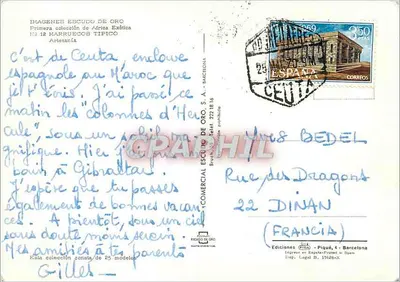 IMAGENES ESCUDO DE ORO
Primera colección de Africa Exótica
III 18 MARRUECOS TIPICO
Artesanía
C'est de Ceuta, enclave
espagnole au Maroc que
je t'écris. J'ai passé ce
matin les "colonnes d'Her
cule", sous un soleil ma-
gnifique. Hier
à Gibraltar.
J'espère que tu passes
également de bonnes vacan-
ces. A pientôt, sous un ciel
sans doute moins serein.
Mes amitiés à tes parents
Gilles
Esta colección consta de 25 modelos
COMERCIAL ESCUDO DE ORO, S. A. - BARCELONA
ESCUDO DE ORO
3,50
ESPAÑA
CORREOS
CEUTA
CARTAPHIL
Yves BEDEL
Rue des Dragons
22 DINAN
(FRANCIA)
Ediciones Piqué, 4 - Barcelona